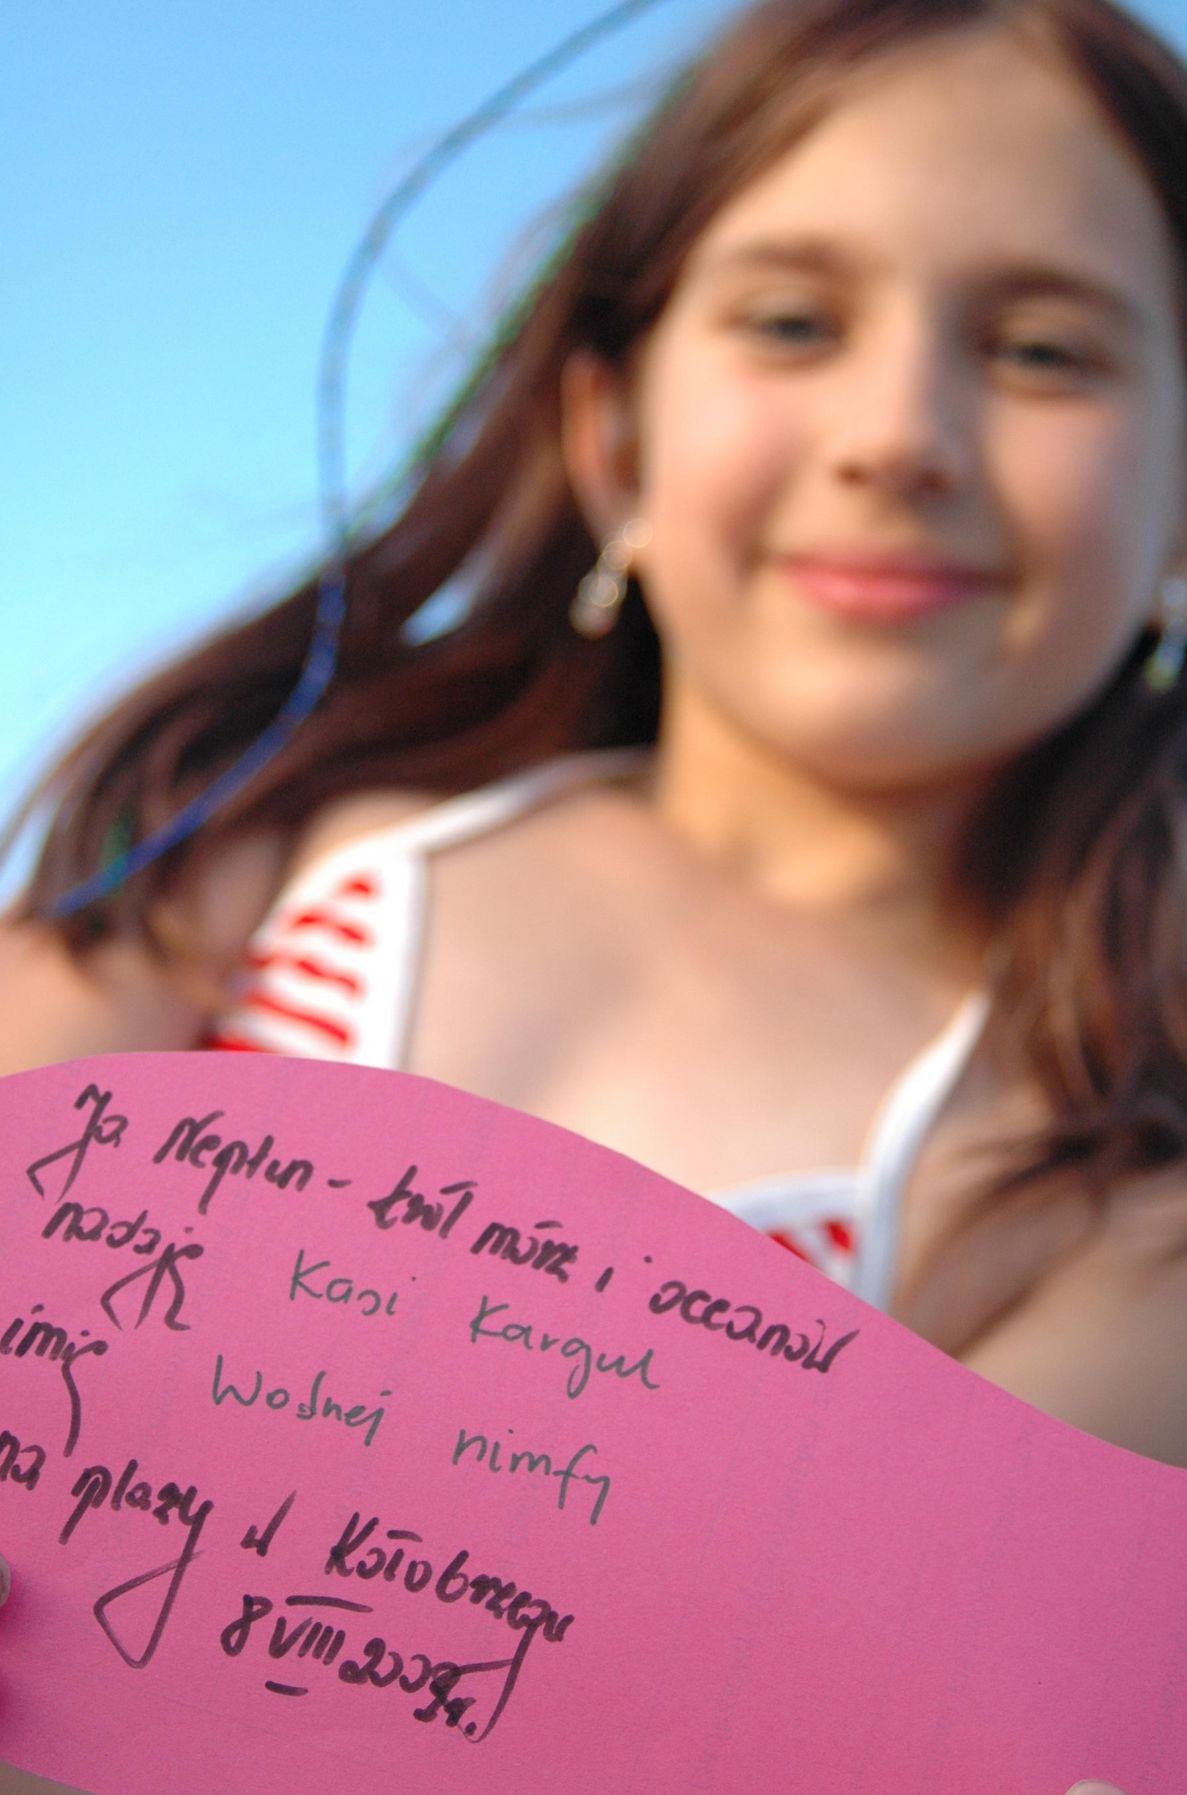 Ja Neptun - król mórz i oceanów
nadaję Kasi Kargul
imię Wodnej nimfy
na plaży w Kołobrzegu
8 VIII 2009r.